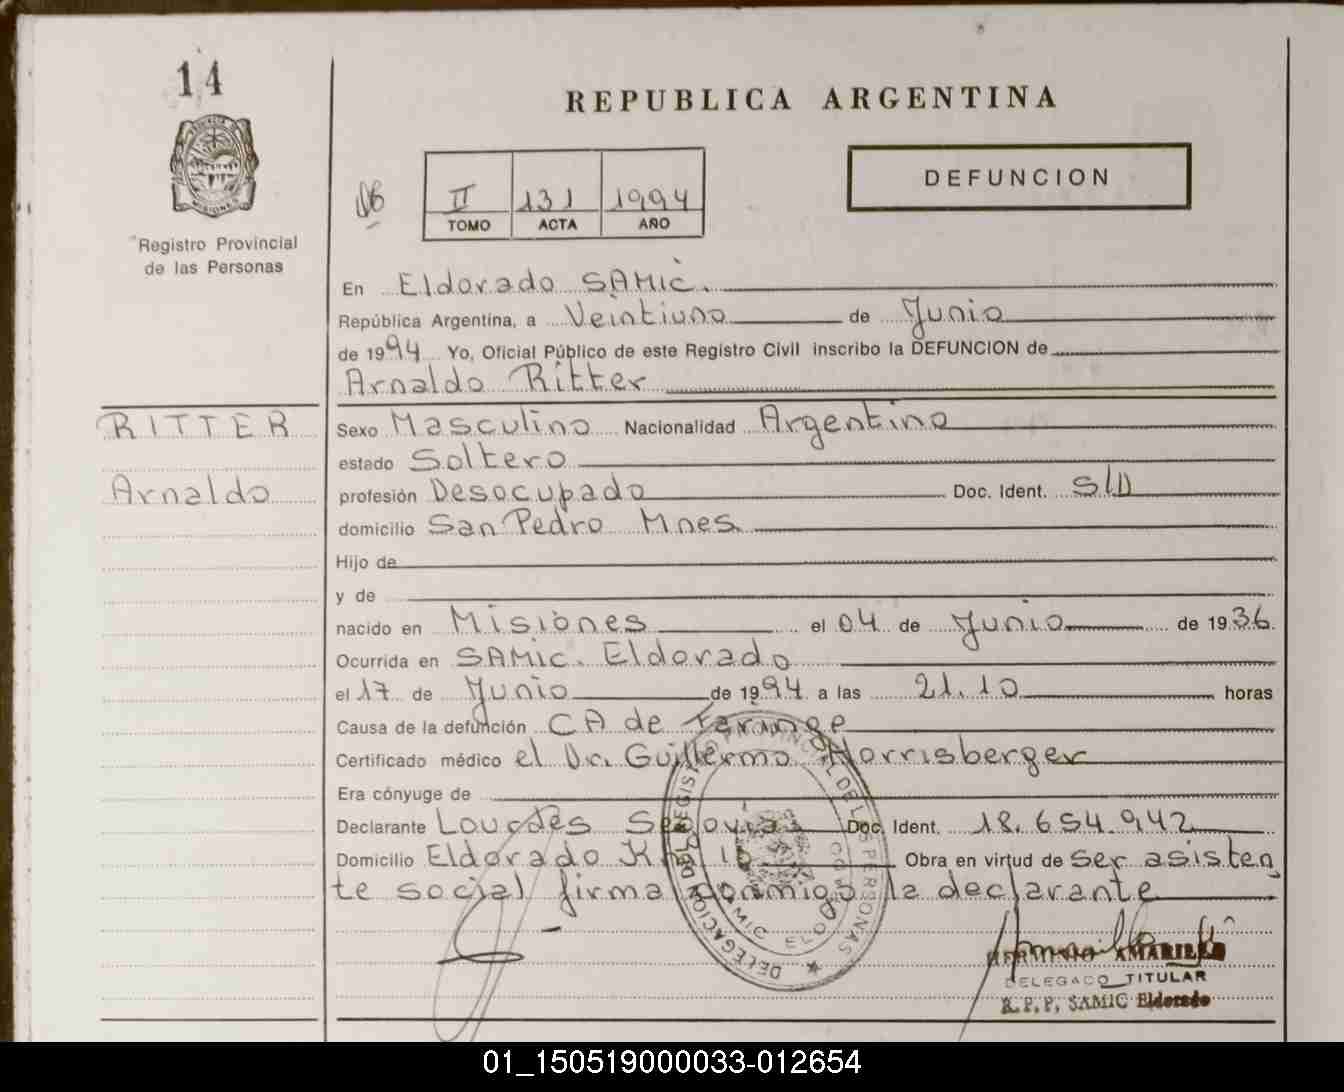 14
REPUBLICA ARGENTINA
DEFUNCION
II 131 1994
TOMO ACTA AÑO
Registro Provincial
de las Personas
En Eldorado SAMic.
República Argentina, a Veintiuno de Junio
de 1994 Yo, Oficial Público de este Registro Civil inscribo la DEFUNCION de
Arnaldo Ritter
RITTER
Arnaldo
Sexo Masculino Nacionalidad Argentino
estado Soltero
profesión Desocupado Doc. Ident. S/D
domicilio San Pedro Mnes.
Hijo de
y de
nacido en Misiones el 04 de Junio de 1936.
Ocurrida en SAMic. Eldorado
el 17 de Junio de 1994 a las 21.10 horas
Causa de la defunción CA de Faringe
Certificado médico el Dr. Guillermo Horrisberger
Era cónyuge de
Declarante Lourdes Segovia Doc. Ident. 18.654.942
Domicilio Eldorado Km 10 Obra en virtud de ser asisten
te social firma conmigo la declarante
REGISTRO PROVINCIAL DE LAS PERSONAS
DELEGACION
SAMIC ELDO
AMARILLA
DELEGADO TITULAR
R.P.P. SAMIC Eldorado
01_150519000033-012654